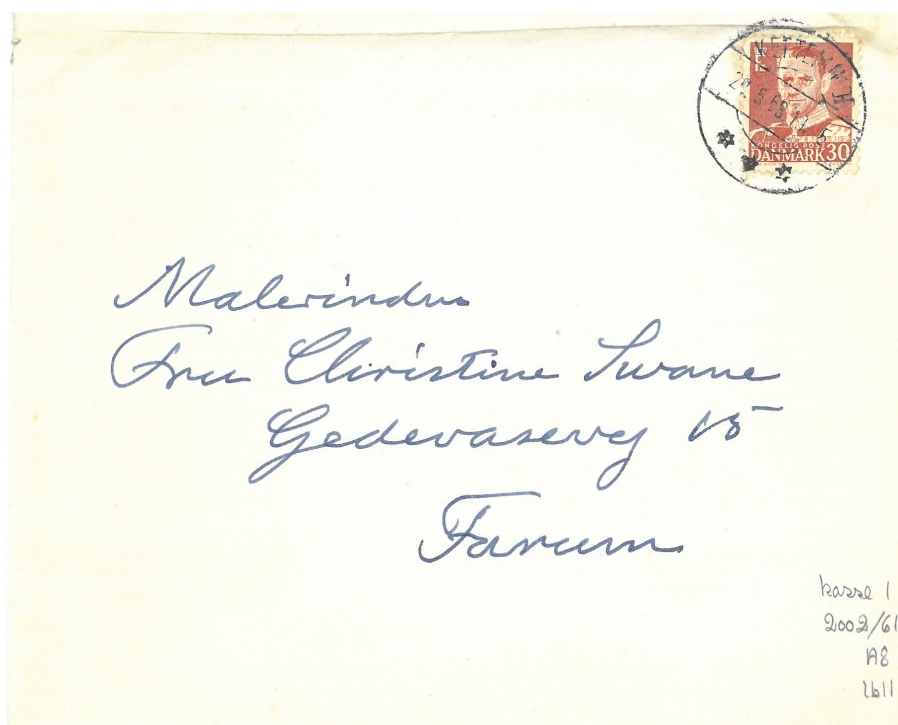 DANMARK 30
Malerinden
Fru Christine Swane
Gedevasevej 15
Farum
kasse 1
2002/61
A8